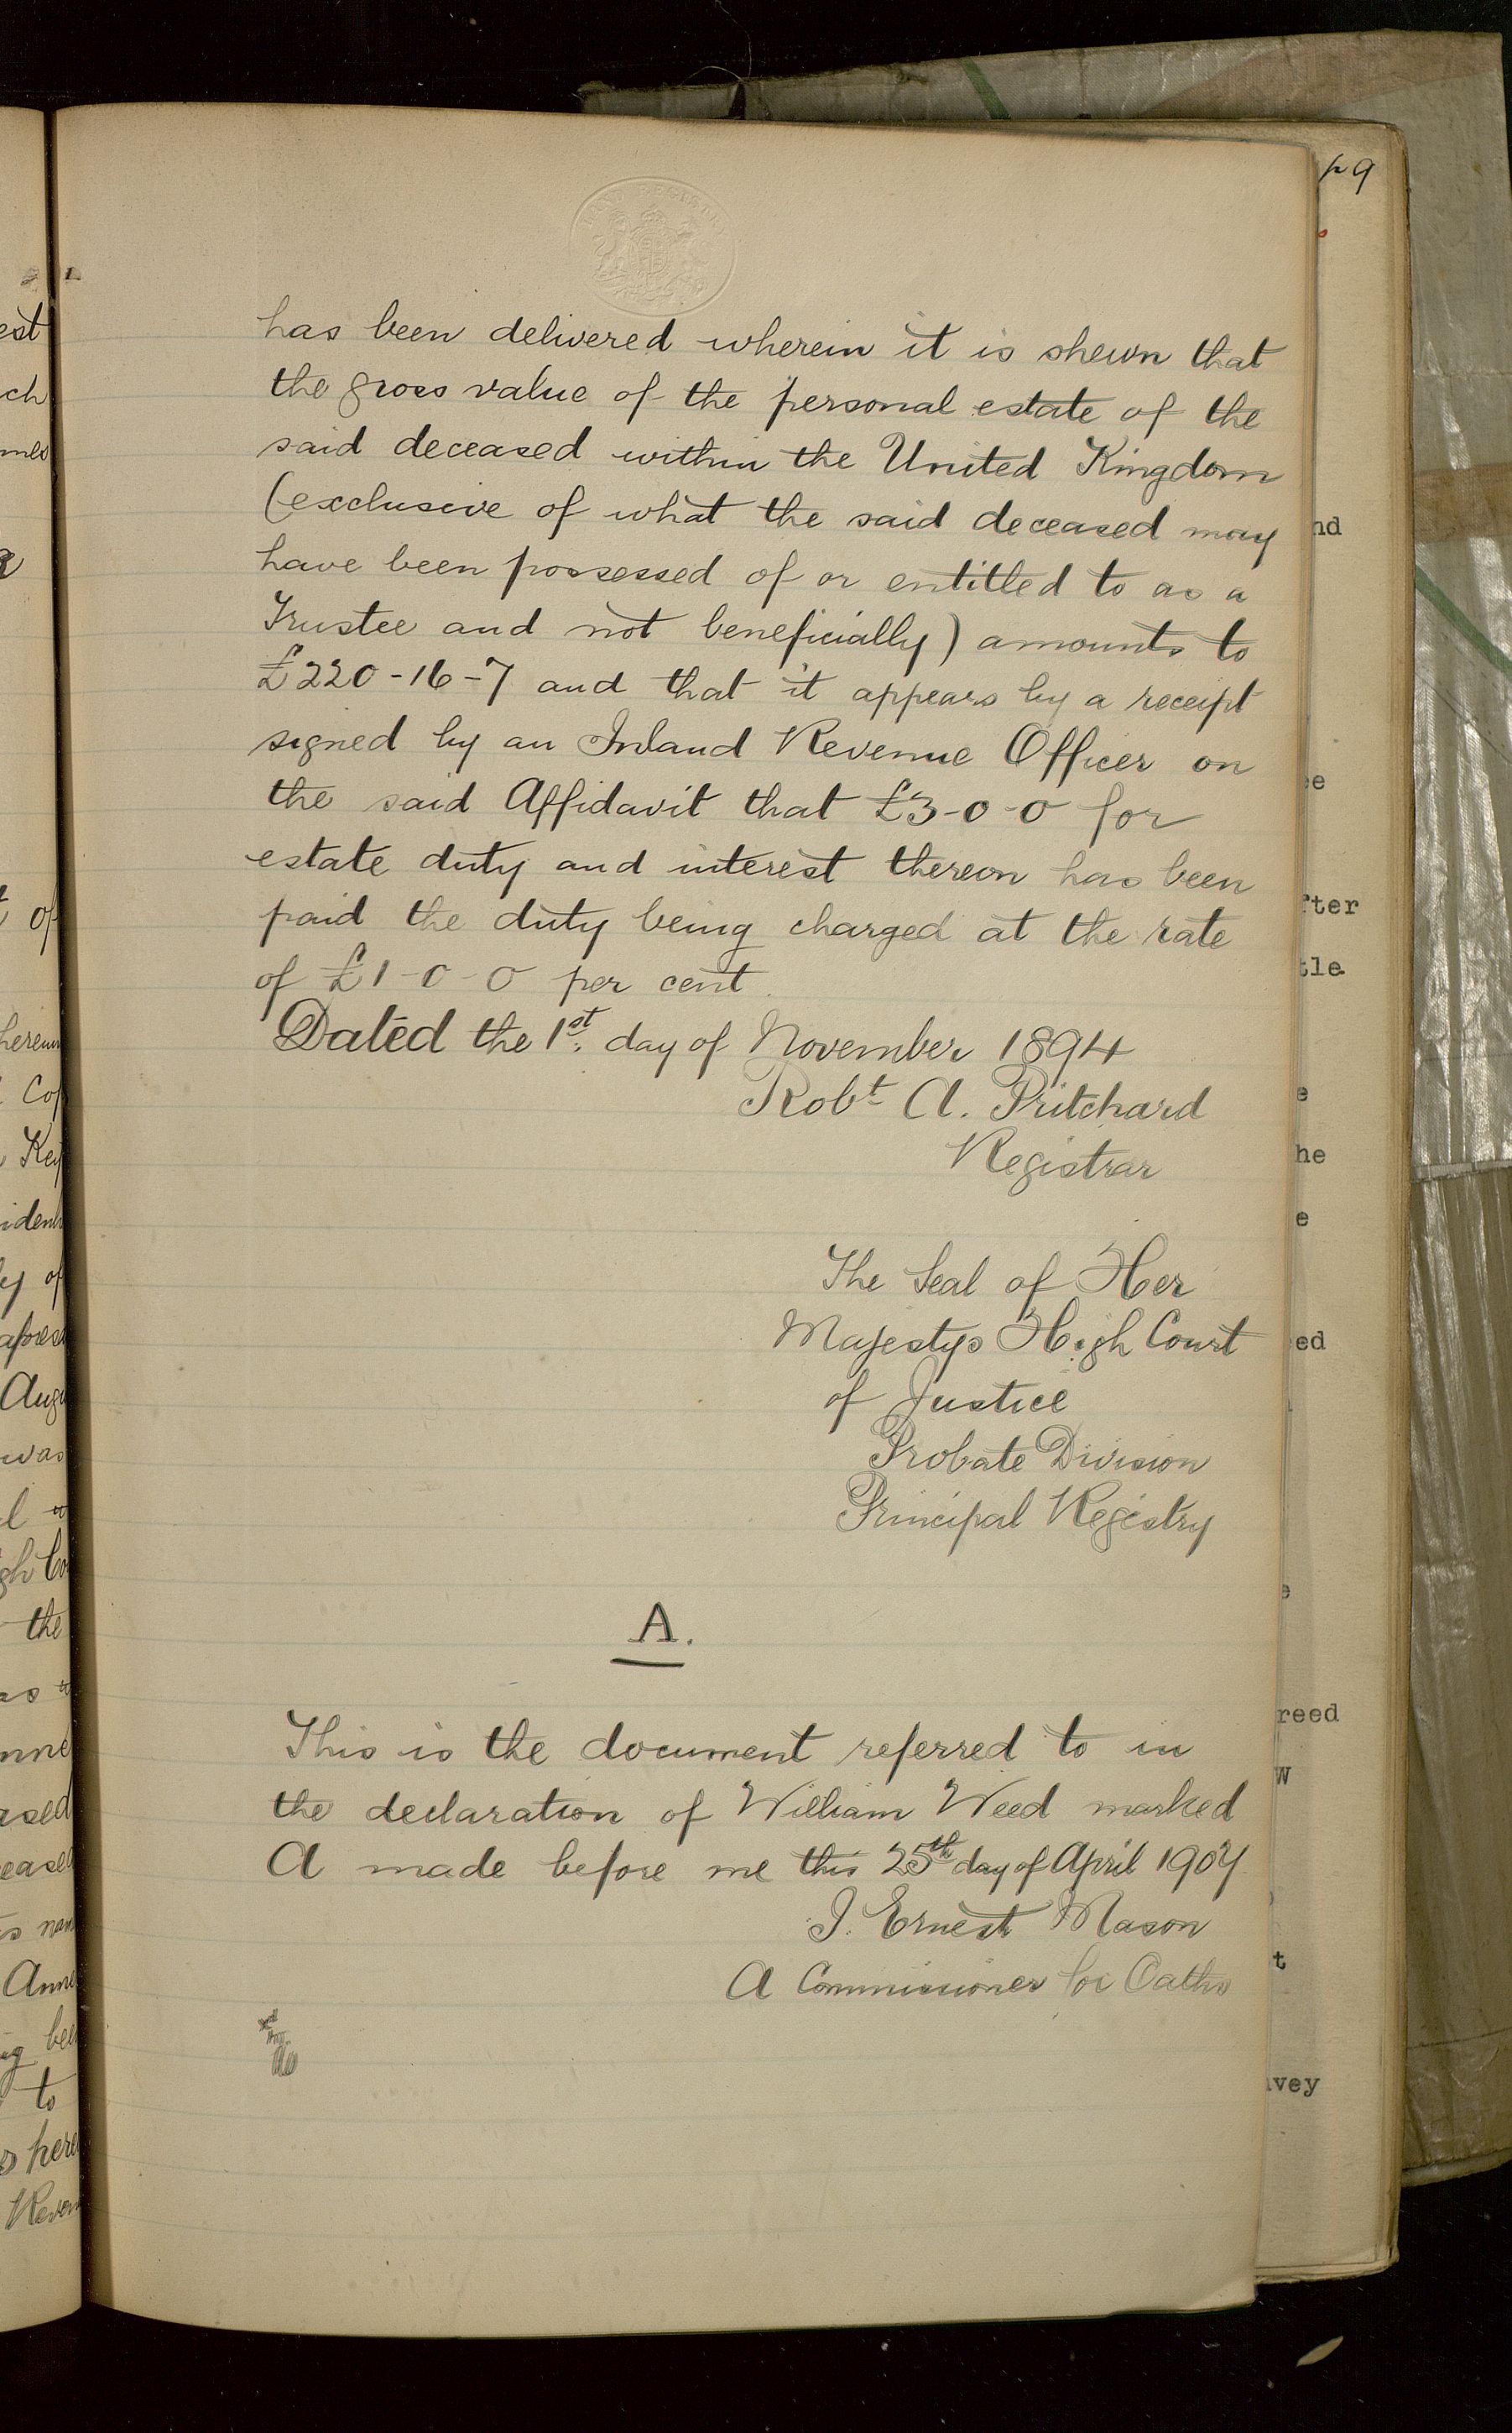 has been delivered wherein it is shewn that
the gross value of the personal estate of the
said deceased within the United Kingdom
(exclusive of what the said deceased may
have been possessed of or entitled to as a
Trustee and not beneficially) amounts to
£220-16-7 and that it appears by a receipt
signed by an Inland Revenue Officer on
the said Affidavit that £3-0-0 for
estate duty and interest thereon has been
paid the duty being charged at the rate
of £1-0-0 per cent.
Dated the 1st. day of November 1894
Robt A. Pritchard
Registrar
The Seal of Her
Majestys High Court
of Justice
Probate Division
Principal Registry
A.
This is the document referred to in
the declaration of William Weed marked
A made before me this 25th day of April 1907
J. Ernest Mason
A Commissioner for Oaths
p 9
nd
ee
fter
tle.
e
he
e
ed
e
reed
w
t
vey
est
ch
of
Cop
Key
of
Augu
was
the
Anne
to
here